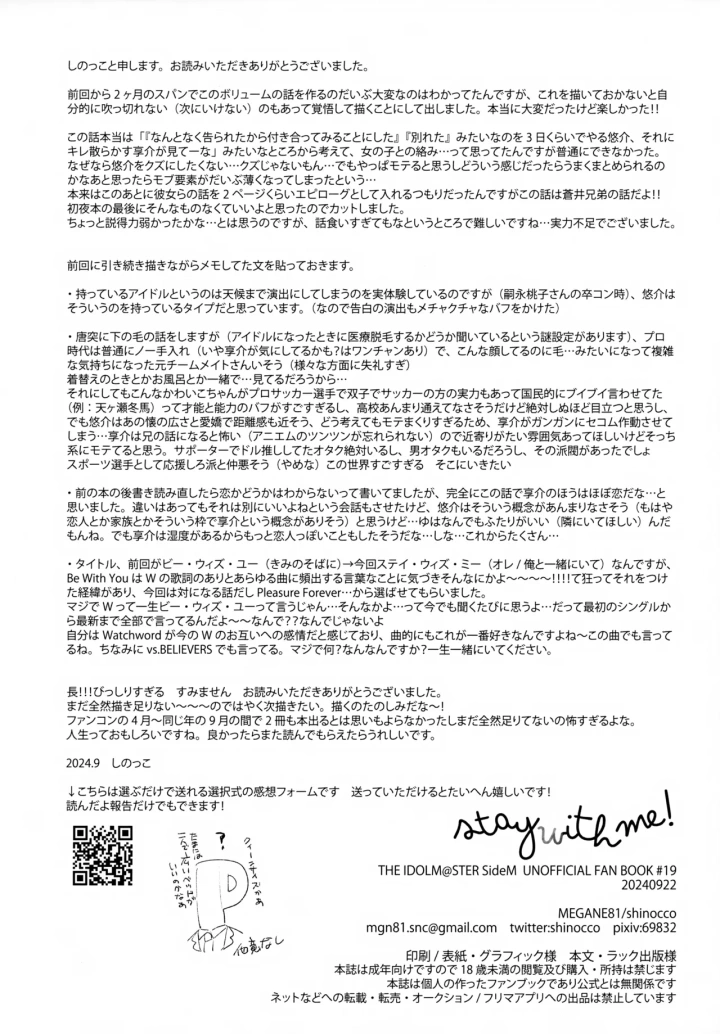 しのっこと申します。お読みいただきありがとうございました。
前回から2ヶ月のスパンでこのボリュームの話を作るのだいぶ大変なのはわかってたんですが、これを描いておかないと自
分的に吹っ切れない（次にいけない）のもあって覚悟して描くことにして出しました。本当に大変だったけど楽しかった!!
この話本当は「『なんとなく告られたから付き合ってみることにした』『別れた』みたいなのを3日くらいでやる悠介、それに
キレ散らかす享介が見てーな」みたいなところから考えて、女の子との絡み…って思ってたんですが普通にできなかった。
なぜなら悠介をクズにしたくない…クズじゃないもん…でもやっぱモテると思うしどういう感じだったらうまくまとめられるの
かなあと思ったらモブ要素がだいぶ薄くなってしまったという…
本来はこのあとに彼女らの話を2ページくらいエピローグとして入れるつもりだったんですがこの話は蒼井兄弟の話だよ!!
初夜本の最後にそんなものなくていいよと思ったのでカットしました。
ちょっと説得力弱かったかな…とは思うのですが、話食いすぎてもなというところで難しいですね…実力不足でございました。
前回に引き続き描きながらメモしてた文を貼っておきます。
・持っているアイドルというのは天候まで演出にしてしまうのを実体験しているのですが（嗣永桃子さんの卒コン時）、悠介は
そういうのを持っているタイプだと思っています。（なので告白の演出もメチャクチャなバフをかけた）
・唐突に下の毛の話をしますが（アイドルになったときに医療脱毛するかどうか聞いているという謎設定があります）、プロ
時代は普通にノー手入れ（いや享介が気にしてるかも?はワンチャンあり）で、こんな顔してるのに毛…みたいになって複雑
な気持ちになった元チームメイトさんいそう（様々な方面に失礼すぎ）
着替えのときとかお風呂とか一緒で…見てるだろうから…
それにしてもこんなかわいこちゃんがプロサッカー選手で双子でサッカーの方の実力もあって国民的にブイブイ言わせてた
（例：天ヶ瀬冬馬）って才能と能力のバフがすごすぎるし、高校あんまり通えてなさそうだけど絶対しぬほど目立つと思うし、
でも悠介はあの懐の広さと愛嬌で距離感も近そう、どう考えてもモテまくりすぎるため、享介がガンガンにセコム作動させて
しまう…享介は兄の話になると怖い（アニエムのツンツンが忘れられない）ので近寄りがたい雰囲気あってほしいけどそっち
系にモテてると思う。サポーターでドル推ししてたオタク絶対いるし、男オタクもいるだろうし、その派閥があったでしょ
スポーツ選手として応援しろ派と仲悪そう（やめな）この世界すごすぎる　そこにいきたい
・前の本の後書き読み直したら恋かどうかはわからないって書いてましたが、完全にこの話で享介のほうはほぼ恋だな…と
思いました。違いはあってもそれは別にいいよねという会話もさせたけど、悠介はそういう概念があんまりなさそう（もはや
恋人とか家族とかそういう枠で享介という概念がありそう）と思うけど…ゆはなんでもふたりがいい（隣にいてほしい）んだ
もんね。でも享介は湿度があるからもっと恋人っぽいこともしたそうだな…しな…これからたくさん…
・タイトル、前回がビー・ウィズ・ユー（きみのそばに）→今回ステイ・ウィズ・ミー（オレ / 俺と一緒にいて）なんですが、
Be With You は W の歌詞のありとあらゆる曲に頻出する言葉なことに気づきそんなにかよ～～～～!!!!て狂ってそれをつけ
た経緯があり、今回は対になる話だし Pleasure Forever…から選ばせてもらいました。
マジで W って一生ビー・ウィズ・ユーって言うじゃん…そんなかよ…って今でも聞くたびに思うよ…だって最初のシングルか
ら最新まで全部で言ってるんだよ～～なんで??なんでじゃないよ
自分は Watchword が今の W のお互いへの感情だと感じており、曲的にもこれが一番好きなんですよね～この曲でも言って
るね。ちなみに vs.BELIEVERS でも言ってる。マジで何?なんなんですか?一生一緒にいてください。
長!!!びっしりすぎる　すみません　お読みいただきありがとうございました。
まだ全然描き足りない～～～のではやく次描きたい。描くのたのしみだな～!
ファンコンの4月～同じ年の9月の間で2冊も本出るとは思いもよらなかったしまだ全然足りてないの怖すぎるよな。
人生っておもしろいですね。良かったらまた読んでもらえたらうれしいです。
2024.9　しのっこ
↓こちらは選ぶだけで送れる選択式の感想フォームです　送っていただけるとたいへん嬉しいです!
読んだよ報告だけでもできます!
stay with me!
?
P
他意なし
THE IDOLM@STER SideM UNOFFICIAL FAN BOOK #19
20240922
MEGANE81/shinocco
mgn81.snc@gmail.com　twitter:shinocco　pixiv:69832
印刷 / 表紙・グラフィック様　本文・ラック出版様
本誌は成年向けですので18歳未満の閲覧及び購入・所持は禁じます
本誌は個人の作ったファンブックであり公式とは無関係です
ネットなどへの転載・転売・オークション / フリマアプリへの出品は禁止しています